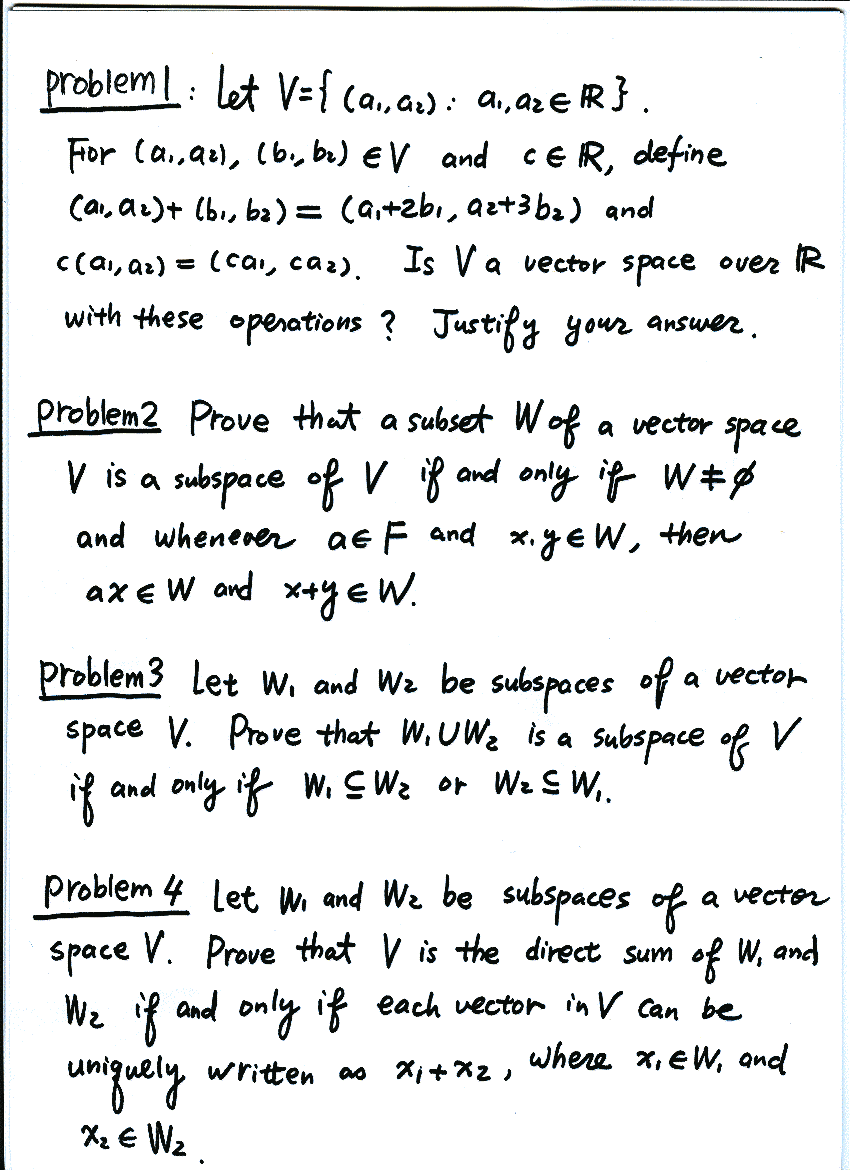 Problem 1 : Let V={ (a₁,a₂) : a₁,a₂ ∈ ℝ }.
For (a₁,a₂), (b₁,b₂) ∈ V and c ∈ ℝ, define
(a₁,a₂)+ (b₁,b₂) = (a₁+2b₁, a₂+3b₂) and
c(a₁,a₂) = (ca₁, ca₂). Is V a vector space over ℝ
with these operations ? Justify your answer.
Problem 2 Prove that a subset W of a vector space
V is a subspace of V if and only if W ≠ ∅
and whenever a ∈ F and x,y ∈ W, then
ax ∈ W and x+y ∈ W.
Problem 3 Let W₁ and W₂ be subspaces of a vector
space V. Prove that W₁ ∪ W₂ is a subspace of V
if and only if W₁ ⊆ W₂ or W₂ ⊆ W₁.
Problem 4 Let W₁ and W₂ be subspaces of a vector
space V. Prove that V is the direct sum of W₁ and
W₂ if and only if each vector in V can be
uniquely written as x₁+x₂, where x₁ ∈ W₁ and
x₂ ∈ W₂.